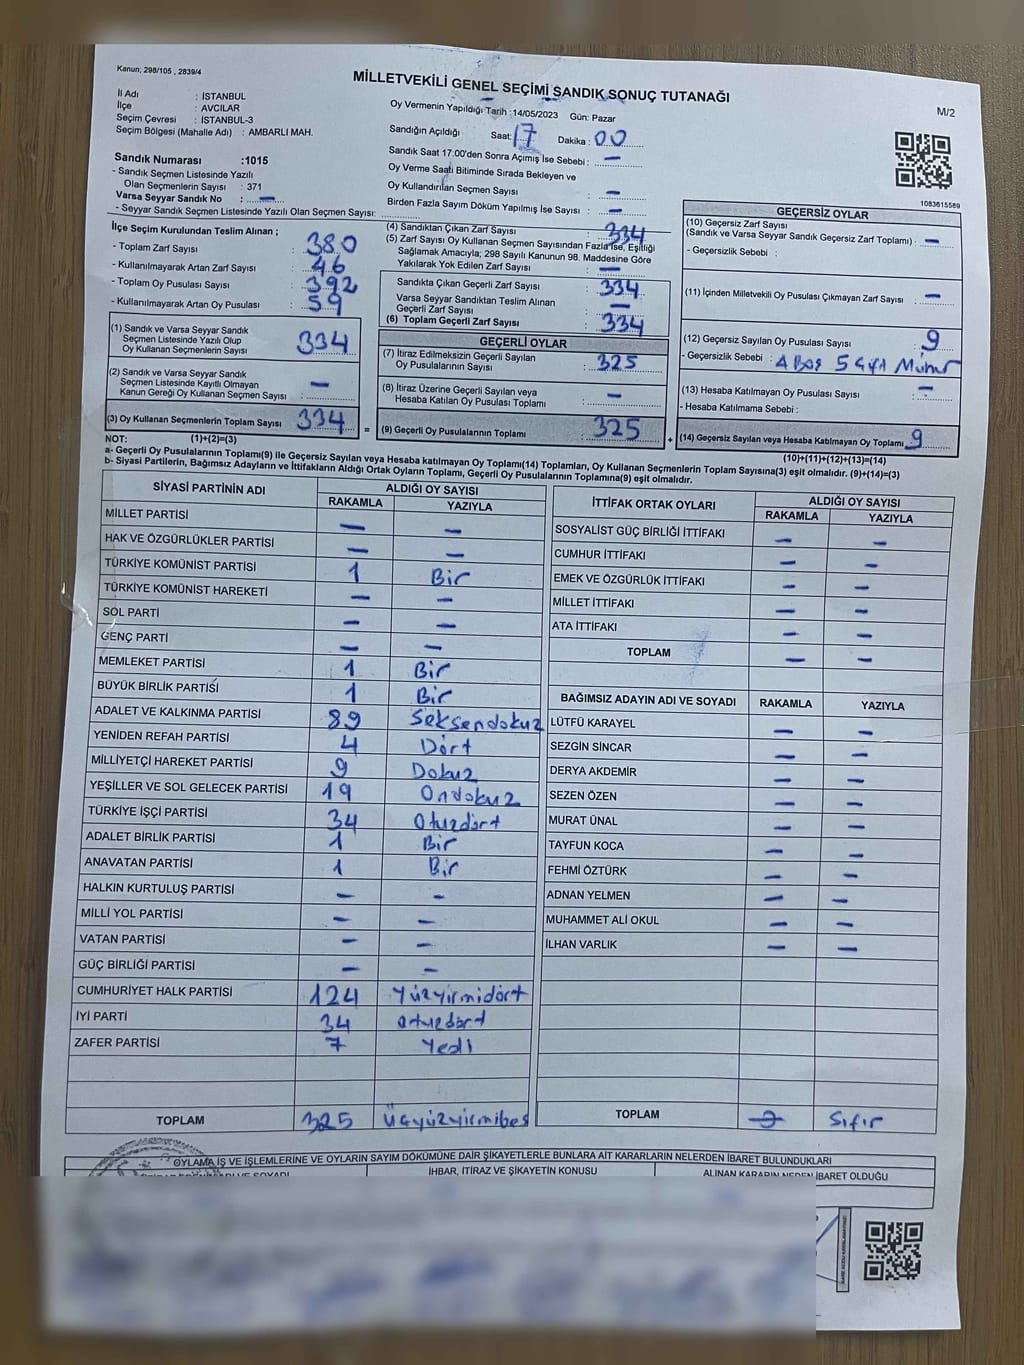 Kanun; 298/105 , 2839/4
MİLLETVEKİLİ GENEL SEÇİMİ SANDIK SONUÇ TUTANAĞI
M/2
İl Adı : İSTANBUL
İlçe : AVCILAR
Seçim Çevresi : İSTANBUL-3
Seçim Bölgesi (Mahalle Adı) : AMBARLI MAH.
Sandık Numarası :1015
- Sandık Seçmen Listesinde Yazılı
Olan Seçmenlerin Sayısı : 371
Varsa Seyyar Sandık No : –
- Seyyar Sandık Seçmen Listesinde Yazılı Olan Seçmen Sayısı:
Oy Vermenin Yapıldığı Tarih :14/05/2023 Gün: Pazar
Sandığın Açıldığı Saat: 17 Dakika : 00
Sandık Saat 17:00'den Sonra Açımış İse Sebebi : –
Oy Verme Saati Bitiminde Sırada Bekleyen ve
Oy Kullandırılan Seçmen Sayısı : –
Birden Fazla Sayım Döküm Yapılmış İse Sayısı : –
1083615589
İlçe Seçim Kurulundan Teslim Alınan ;
- Toplam Zarf Sayısı : 380
- Kullanılmayarak Artan Zarf Sayısı : 46
- Toplam Oy Pusulası Sayısı : 392
- Kullanılmayarak Artan Oy Pusulası : 59
(1) Sandık ve Varsa Seyyar Sandık
Seçmen Listesinde Yazılı Olup
Oy Kullanan Seçmenlerin Sayısı : 334
(2) Sandık ve Varsa Seyyar Sandık
Seçmen Listesinde Kayıtlı Olmayan
Kanun Gereği Oy Kullanan Seçmen Sayısı : –
(3) Oy Kullanan Seçmenlerin Toplam Sayısı : 334
(4) Sandıktan Çıkan Zarf Sayısı : 334
(5) Zarf Sayısı Oy Kullanan Seçmen Sayısından Fazla ise, Eşitliği
Sağlamak Amacıyla; 298 Sayılı Kanunun 98. Maddesine Göre
Yakılarak Yok Edilen Zarf Sayısı : –
Sandıkta Çıkan Geçerli Zarf Sayısı : 334
Varsa Seyyar Sandıktan Teslim Alınan
Geçerli Zarf Sayısı : –
(6) Toplam Geçerli Zarf Sayısı : 334
GEÇERLİ OYLAR
(7) İtiraz Edilmeksizin Geçerli Sayılan
Oy Pusulalarının Sayısı : 325
(8) İtiraz Üzerine Geçerli Sayılan veya
Hesaba Katılan Oy Pusulası Toplamı : –
= (9) Geçerli Oy Pusulalarının Toplamı : 325
GEÇERSİZ OYLAR
(10) Geçersiz Zarf Sayısı
(Sandık ve Varsa Seyyar Sandık Geçersiz Zarf Toplamı) : –
- Geçersizlik Sebebi :
(11) İçinden Milletvekili Oy Pusulası Çıkmayan Zarf Sayısı : –
(12) Geçersiz Sayılan Oy Pusulası Sayısı : 9
- Geçersizlik Sebebi : 4 Boş 5 Çift Mühür
(13) Hesaba Katılmayan Oy Pusulası Sayısı : –
- Hesaba Katılmama Sebebi :
+ (14) Geçersiz Sayılan veya Hesaba Katılmayan Oy Toplamı : 9
NOT: (1)+(2)=(3)
(10)+(11)+(12)+(13)=(14)
a- Geçerli Oy Pusulaları Toplamı(9) ile Geçersiz Sayılan veya Hesaba katılmayan Oy Toplamı(14) Toplamları, Oy Kullanan Seçmenlerin Toplam Sayısına(3) eşit olmalıdır. (9)+(14)=(3)
b- Siyasi Partilerin, Bağımsız Adayların ve İttifakların Aldığı Ortak Oyların Toplamı, Geçerli Oy Pusulalarının Toplamına(9) eşit olmalıdır.
SİYASİ PARTİNİN ADI ALDIĞI OY SAYISI
RAKAMLA YAZIYLA
MİLLET PARTİSİ – –
HAK VE ÖZGÜRLÜKLER PARTİSİ – –
TÜRKİYE KOMÜNİST PARTİSİ 1 Bir
TÜRKİYE KOMÜNİST HAREKETİ – –
SOL PARTİ – –
GENÇ PARTİ – –
MEMLEKET PARTİSİ 1 Bir
BÜYÜK BİRLİK PARTİSİ 1 Bir
ADALET VE KALKINMA PARTİSİ 89 Seksendokuz
YENİDEN REFAH PARTİSİ 4 Dört
MİLLİYETÇİ HAREKET PARTİSİ 9 Dokuz
YEŞİLLER VE SOL GELECEK PARTİSİ 19 Ondokuz
TÜRKİYE İŞÇİ PARTİSİ 34 Otuzdört
ADALET BİRLİK PARTİSİ 1 Bir
ANAVATAN PARTİSİ 1 Bir
HALKIN KURTULUŞ PARTİSİ – –
MİLLİ YOL PARTİSİ – –
VATAN PARTİSİ – –
GÜÇ BİRLİĞİ PARTİSİ – –
CUMHURİYET HALK PARTİSİ 124 Yüzyirmidört
İYİ PARTİ 34 otuzdört
ZAFER PARTİSİ 7 Yedi
TOPLAM 325 Üçyüzyirmibeş
İTTİFAK ORTAK OYLARI ALDIĞI OY SAYISI
RAKAMLA YAZIYLA
SOSYALİST GÜÇ BİRLİĞİ İTTİFAKI – –
CUMHUR İTTİFAKI – –
EMEK VE ÖZGÜRLÜK İTTİFAKI – –
MİLLET İTTİFAKI – –
ATA İTTİFAKI – –
TOPLAM – –
BAĞIMSIZ ADAYIN ADI VE SOYADI RAKAMLA YAZIYLA
LÜTFÜ KARAYEL – –
SEZGİN SİNCAR – –
DERYA AKDEMİR – –
SEZEN ÖZEN – –
MURAT ÜNAL – –
TAYFUN KOCA – –
FEHMİ ÖZTÜRK – –
ADNAN YELMEN – –
MUHAMMET ALİ OKUL – –
İLHAN VARLIK – –
TOPLAM Sıfır
OYLAMA İŞ VE İŞLEMLERİNE VE OYLARIN SAYIM DÖKÜMÜNE DAİR ŞİKAYETLERLE BUNLARA AİT KARARLARIN NELERDEN İBARET BULUNDUKLARI
İHBAR, İTİRAZ VE ŞİKAYETİN KONUSU
ALINAN KARARIN NEDEN İBARET OLDUĞU